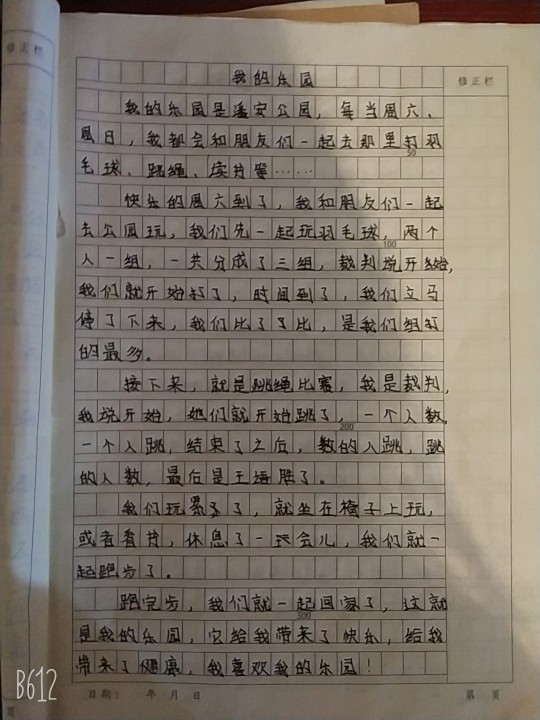 修正栏
修正栏
我的乐园
我的乐园是潘安公园，每当周六、
周日，我都会和朋友们一起去那里打羽
50
毛球、跳绳、读书等……
快乐的周六到了，我和朋友们一起
去公园玩，我们先一起玩羽毛球，两个
100
人一组，一共分成了三组，裁判说开始，
我们就开始打了，时间到了，我们立马
停了下来，我们比了了比，是我们组打
的最多。
接下来，就是跳绳比赛，我是裁判，
我说开始，她们就开始跳了，一个人数，
200
一个人跳，结束了之后，数的人跳，跳
的人数，最后是王语胜了。
我们玩累了，就坐在椅子上玩，
或者看书，休息了一会儿，我们就一
起跑步了。
跑完步，我们就一起回家了，这就
300
是我的乐园，它给我带来了快乐，给我
带来了健康，我喜欢我的乐园！
B612
页
日期： 年 月 日
第 页